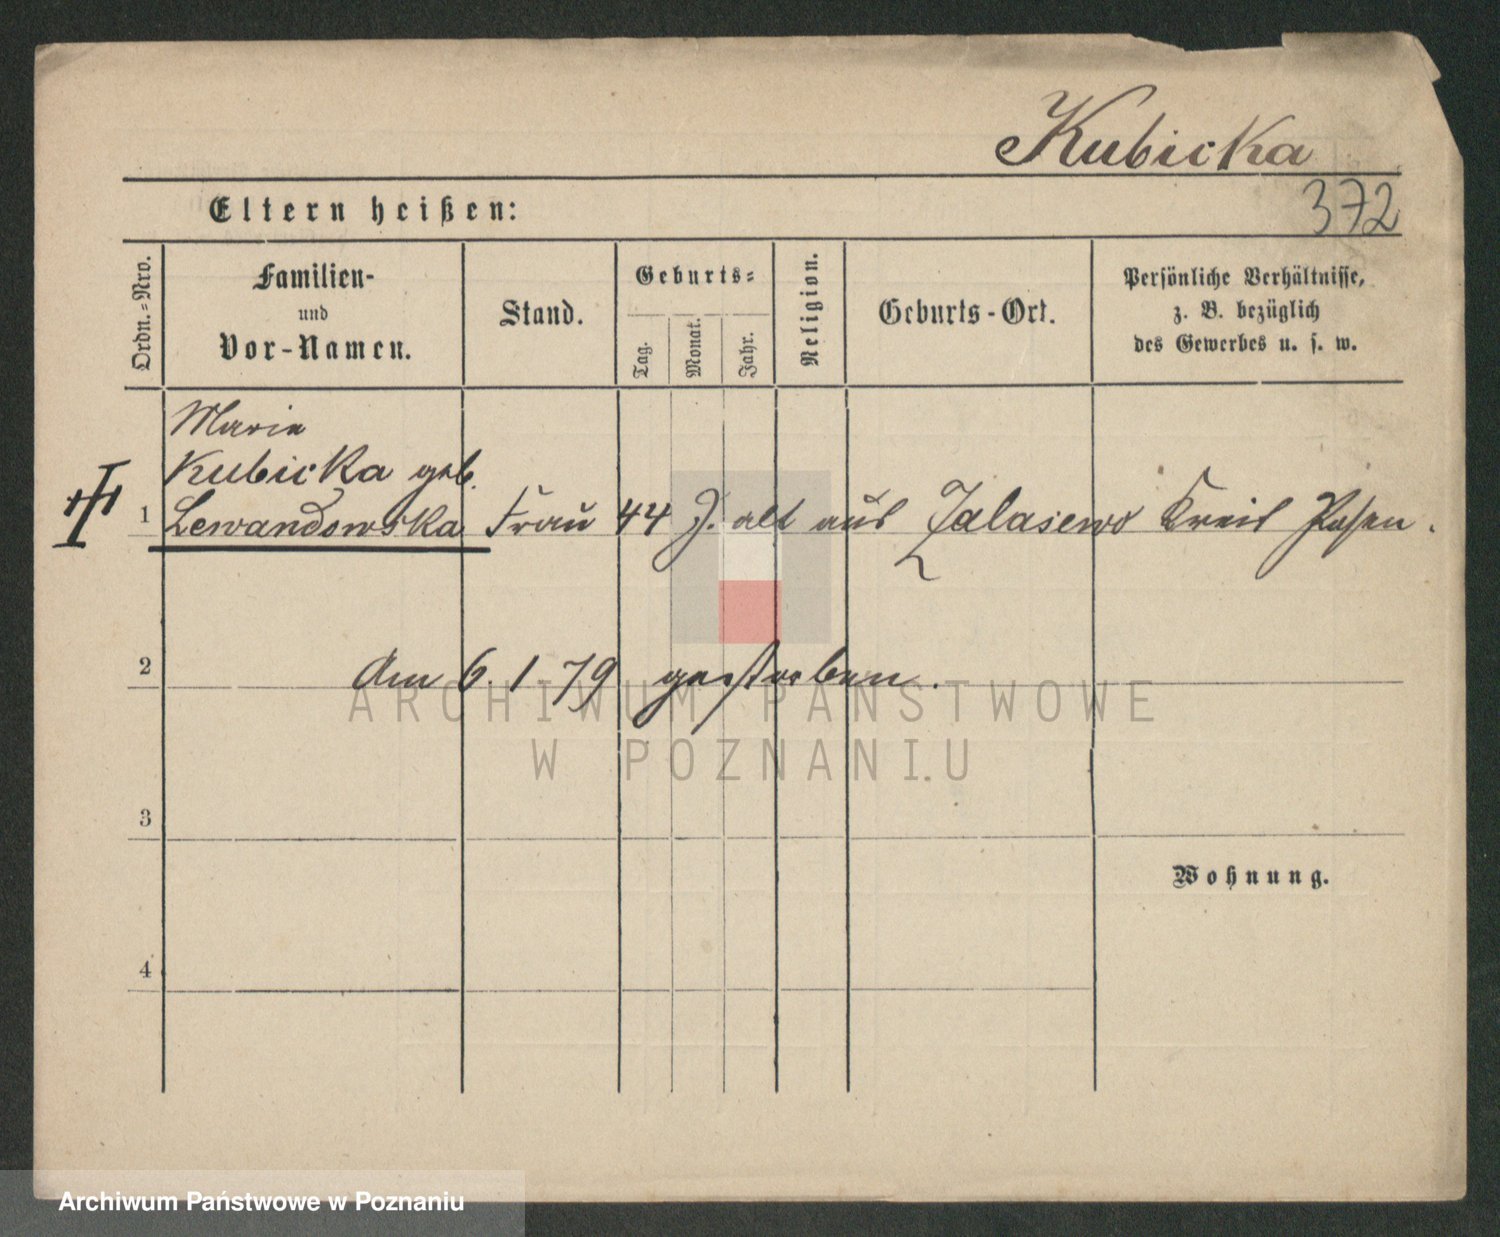 Kubicka
372
Eltern heißen:
Ordn.-Nro.
Familien-
und
Vor-Namen.
Stand.
Geburts-
Tag.
Monat.
Jahr.
Religion.
Geburts-Ort.
Persönliche Verhältnisse,
z. B. bezüglich
des Gewerbes u. s. w.
Marie
Kubicka geb.
1 Lewandowska Frau 44 J. alt aus Zalasewo Kreis Posen.
2 Am 6. 1 79 gestorben.
3
Wohnung.
4
ARCHIWUM PAŃSTWOWE
W POZNANIU
Archiwum Państwowe w Poznaniu